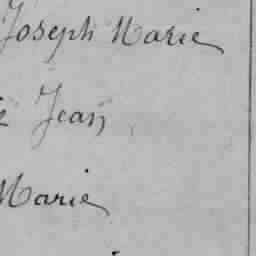 Joseph Marie
Jean
Marie